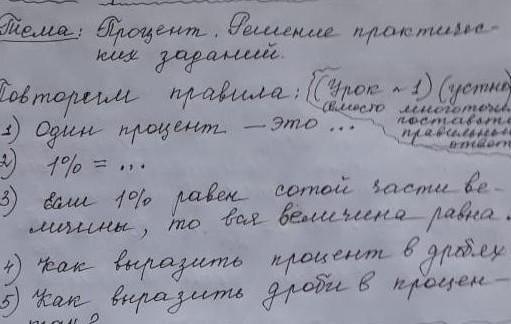 Тема: Процент. Решение практичес-
ких заданий.
Повторим правила: (Урок ~1) (устно)
вместо многоточия
поставьте
правильный
ответ
1) Один процент – это ...
2) 1% = ...
3) Если 1% равен сотой части ве-
личины, то вся величина равна.
4) Как выразить процент в дробях
5) Как выразить дроби в процен-
тах?